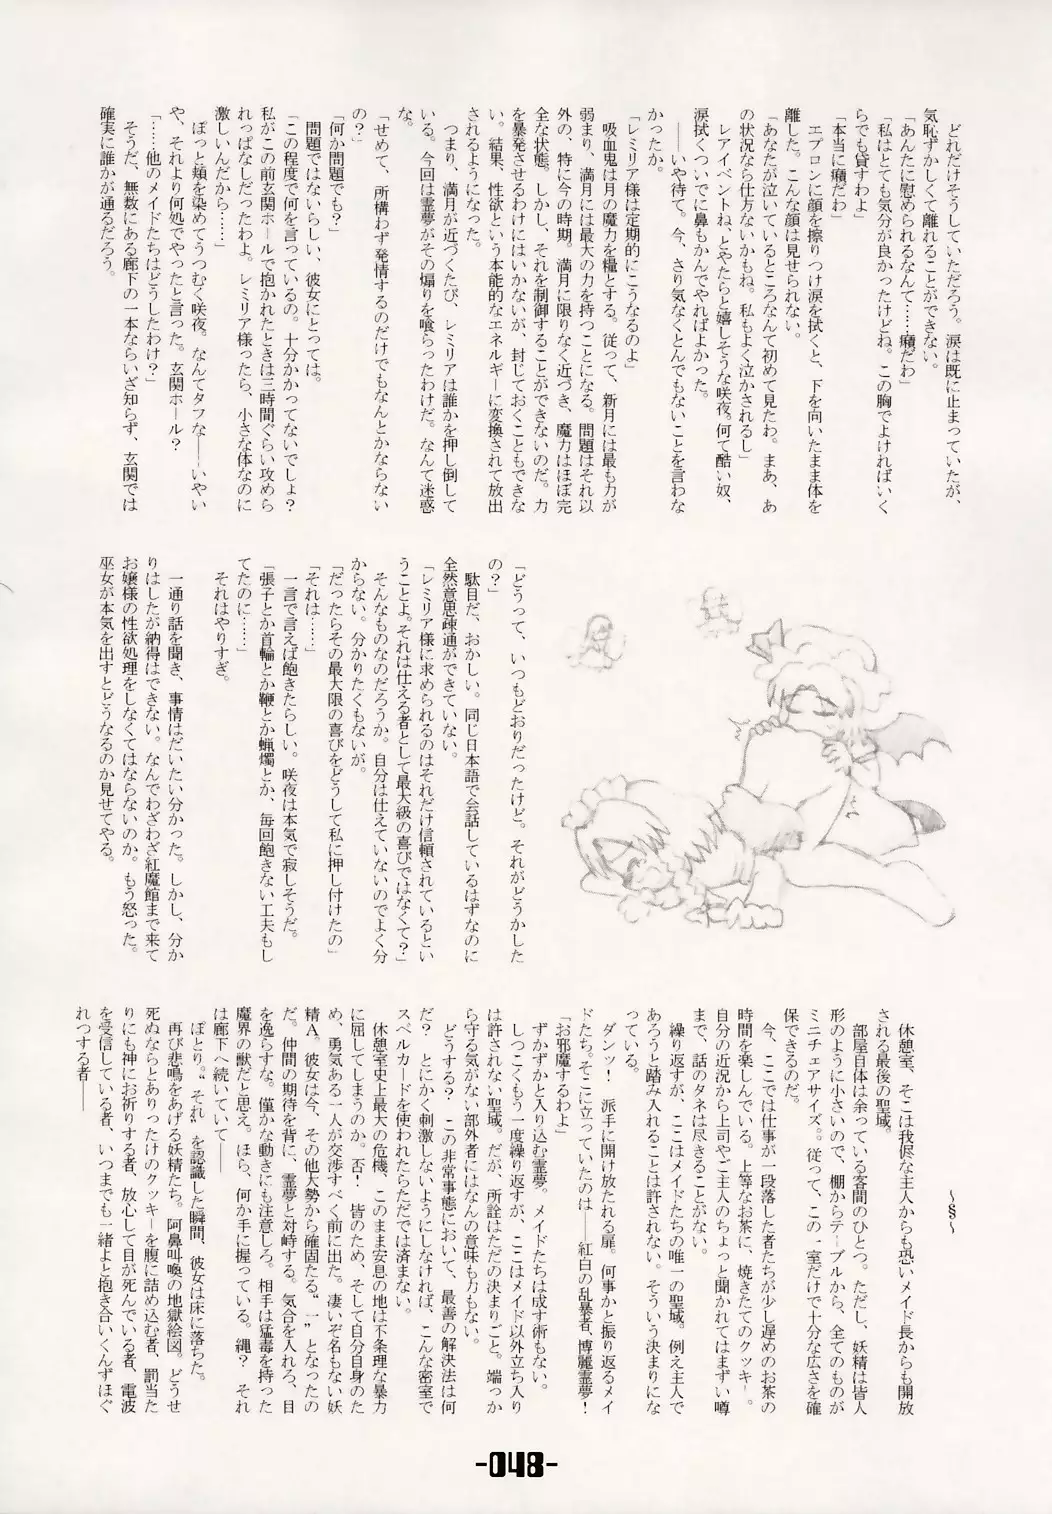 どれだけそうしていただろう。涙は既に止まっていたが、
気恥ずかしくて離れることができない。
「あんたに慰められるなんて……癪だわ」
「私はとても気分が良かったけどね。この胸でよければいく
らでも貸すわよ」
「本当に癪だわ」
　エプロンに顔を擦りつけ涙を拭くと、下を向いたまま体を
離した。こんな顔は見せられない。
「あなたが泣いているところなんて初めて見たわ。まあ、あ
の状況なら仕方ないかもね。私もよく泣かされるし」
　レアイベントね、とやたらと嬉しそうな咲夜。何て酷い奴、
涙拭くついでに鼻もかんでやればよかった。
　――いや待て。今、さり気なくとんでもないことを言わな
かったか。
「レミリア様は定期的にこうなるのよ」
　吸血鬼は月の魔力を糧とする。従って、新月には最も力が
弱まり、満月には最大の力を持つことになる。問題はそれ以
外の、特に今の時期。満月に限りなく近づき、魔力はほぼ完
全な状態。しかし、それを制御することができないのだ。力
を暴発させるわけにはいかないが、封じておくこともできな
い。結果、性欲という本能的なエネルギーに変換されて放出
されるようになった。
　つまり、満月が近づくたび、レミリアは誰かを押し倒して
いる。今回は霊夢がその煽りを喰らったわけだ。なんて迷惑
な。
「せめて、所構わず発情するのだけでもなんとかならない
の？」
「何か問題でも？」
　問題ではないらしい、彼女にとっては。
「この程度で何を言っているの。十分かかってないでしょ？
私がこの前玄関ホールで抱かれたときは三時間ぐらい攻めら
れっぱなしだったわよ。レミリア様ったら、小さな体なのに
激しいんだから……」
　ぽっと頬を染めてうつむく咲夜。なんてタフな――いやい
や、それより何処でやったと言った。玄関ホール？
「……他のメイドたちはどうしたわけ？」
　そうだ、無数にある廊下の一本ならいざ知らず、玄関では
確実に誰かが通るだろう。
「どうって、いつもどおりだったけど。それがどうかした
の？」
　駄目だ、おかしい。同じ日本語で会話しているはずなのに
全然意思疎通ができていない。
「レミリア様に求められるのはそれだけ信頼されているとい
うことよ。それは仕える者として最大級の喜びではなくて？」
　そんなものなのだろうか。自分は仕えていないのでよく分
からない。分かりたくもないが。
「だったらその最大限の喜びをどうして私に押し付けたの」
「それは……」
　一言で言えば飽きたらしい。咲夜は本気で寂しそうだ。
「張子とか首輪とか鞭とか蝋燭とか、毎回飽きない工夫もし
てたのに……」
　それはやりすぎ。
　一通り話を聞き、事情はだいたい分かった。しかし、分か
りはしたが納得はできない。なんでわざわざ紅魔館まで来て
お嬢様の性欲処理をしなくてはならないのか。もう怒った。
巫女が本気を出すとどうなるのか見せてやる。
～§～
　休憩室、そこは我侭な主人からも恐いメイド長からも開放
される最後の聖域。
　部屋自体は余っている客間のひとつ。ただし、妖精は皆人
形のように小さいので、棚からテーブルから、全てのものが
ミニチュアサイズ。従って、この一室だけで十分な広さを確
保できるのだ。
　今、ここでは仕事が一段落した者たちが少し遅めのお茶の
時間を楽しんでいる。上等なお茶に、焼きたてのクッキー。
自分の近況から上司やご主人のちょっと聞かれてはまずい噂
まで、話のタネは尽きることがない。
　繰り返すが、ここはメイドたちの唯一の聖域。例え主人で
あろうと踏み入れることは許されない。そういう決まりにな
っている。
　ダンッ！　派手に開け放たれる扉。何事かと振り返るメイ
ドたち。そこに立っていたのは――紅白の乱暴者、博麗霊夢！
「お邪魔するわよ」
　ずかずかと入り込む霊夢。メイドたちは成す術もない。
　しつこくもう一度繰り返すが、ここはメイド以外立ち入り
は許されない聖域。だが、所詮はただの決まりごと。端っか
ら守る気がない部外者にはなんの意味も力もない。
　どうする？　この非常事態において、最善の解決法は何
だ？　とにかく刺激しないようにしなければ、こんな密室で
スペルカードを使われたらただでは済まない。
　休憩室史上最大の危機、このまま安息の地は不条理な暴力
に屈してしまうのか。否！　皆のため、そして自分自身のた
め、勇気ある一人が交渉すべく前に出た。凄いぞ名もない妖
精Ａ。彼女は今、その他大勢から確固たる〝一〟となったの
だ。仲間の期待を背に、霊夢と対峙する。気合を入れろ、目
を逸らすな。僅かな動きにも注意しろ。相手は猛毒を持った
魔界の獣だと思え。ほら、何か手に握っている。縄？　それ
は廊下へ続いていて――
　ぽとり。〝それ〟を認識した瞬間、彼女は床に落ちた。
　再び悲鳴をあげる妖精たち。阿鼻叫喚の地獄絵図。どうせ
死ぬならとありったけのクッキーを腹に詰め込む者、罰当た
りにも神にお祈りする者、放心して目が死んでいる者、電波
を受信している者、いつまでも一緒よと抱き合いくんずほぐ
れつする者――
-048-